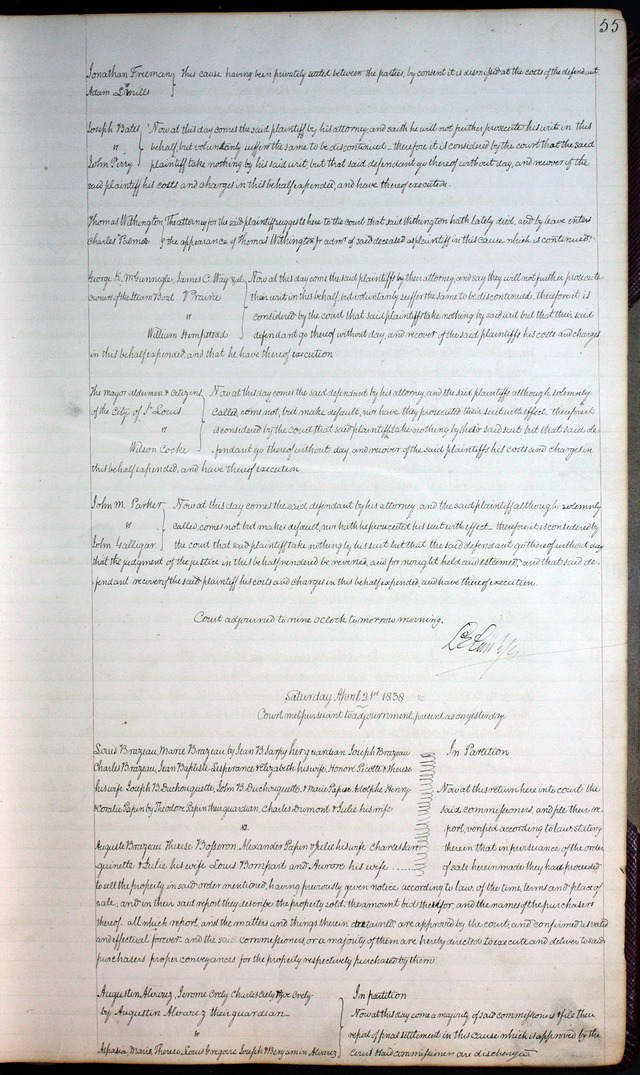 55
Jonathan Freeman } This cause having been privately settled between the parties, by consent it is dismissed at the costs of the defendant.
Adam L Mills
Joseph Bates } Now at this day comes the said plaintiff by his attorney, and saith he will not further prosecute his writ in this
vs behalf, but voluntarily suffers the same to be discontinued. therefore it is considered by the court that the said
John Perry plaintiff take nothing by his said writ, but that said defendant go thereof without day, and recover of the
said plaintiff his costs and charges in this behalf expended, and have thereof execution.
Thomas Withington } The attorney for the said plaintiff suggests here to the court that said Withington hath lately died, and by leave enters
Charles the appearance of Thomas Withington Jr admr. of said deceased as plaintiff in this cause which is continued.
George K. McGunnegle, James C. Way & al. } Now at this day come the said plaintiffs by their attorney, and say they will not further prosecute
owners of the Steam Boat Prairie their writ in this behalf, but voluntarily suffer the same to be discontinued. Therefore it is
vs considered by the court that said plaintiffs take nothing by said writ but that their said
William Hempstead defendant go thereof without day, and recover of the said plaintiffs his costs and charges
in this behalf expended, and that he have thereof execution
The mayor aldermen & citizens } Now at this day comes the said defendant by his attorney, and the said plaintiffs although solemnly
of the City of St Louis called, come not, but make default, nor have they prosecuted their suit with effect. therefore it
vs is considered by the court that said plaintiffs take nothing by their said suit but that said de-
Wilson Cocke fendant go thereof without day, and recover of the said plaintiffs his costs and charges in
this behalf expended, and have thereof execution
John M. Parker } Now at this day comes the said defendant by his attorney, and the said plaintiff although solemnly
vs called, comes not but makes default, nor hath he prosecuted his suit with effect. therefore it is considered by
John Galligar the court that said plaintiff take nothing by his suit but that the said defendant go thereof without day
that the judgment of the justice in this behalf rendered be reversed, and for nought held and esteemed, and that said de-
fendant recover of the said plaintiff his costs and charges in this behalf expended, and have thereof execution.
Court adjourned to nine oclock tomorrow morning.
Saturday April 21st 1838
Court met pursuant to adjournment, present as on yesterday
Louis Brazeau, Marie Brazeau by Jean B Sarpy her guardian Joseph Brazeau In Partition
Charles Brazeau, Jean Baptiste Lesperance & Elizabeth his wife, Honore Picotte & Therese
his wife Joseph B Duchouquette, John B. Duchouquette, & Marie Papin, Adolphe Henry Now at this return here into court the
& Coralie Papin by Theodore Papin their guardian, Charles Dumont & Julie his wife said commissioners, and file their re-
vs. port, verified according to law, stating
Auguste Brazeau Therese Alexander Papin & Julie his wife Charles therein that in pursuance of the order
quinette & Julie his wife Louis Bompart and Aurore his wife ...... of sale herein made they had proceeded
to sell the property in said order mentioned, having previously given notice according to law, of the time, terms and place of
sale, and in their said report they describe the property sold, the amount bid therefor, and the names of the purchasers
thereof. all which report, and the matters and things therein contained, are approved by the court, and confirmed as valid
and effectual forever. and the said commissioners, or a majority of them are hereby directed to execute and deliver to said
purchasers proper conveyances for the property respectively purchased by them.
Augustin Alvarez, Jerome Crely Charles Crely & Crely } In partition
by Augustin Alvarez their guardian Now at this day come a majority of said commissioners & file their
vs report of final settlement in this cause which is approved by the
Aspasia Marie, Therese, Louis Gregoire Joseph & Benjamin Alvarez court & said commissioners are discharged